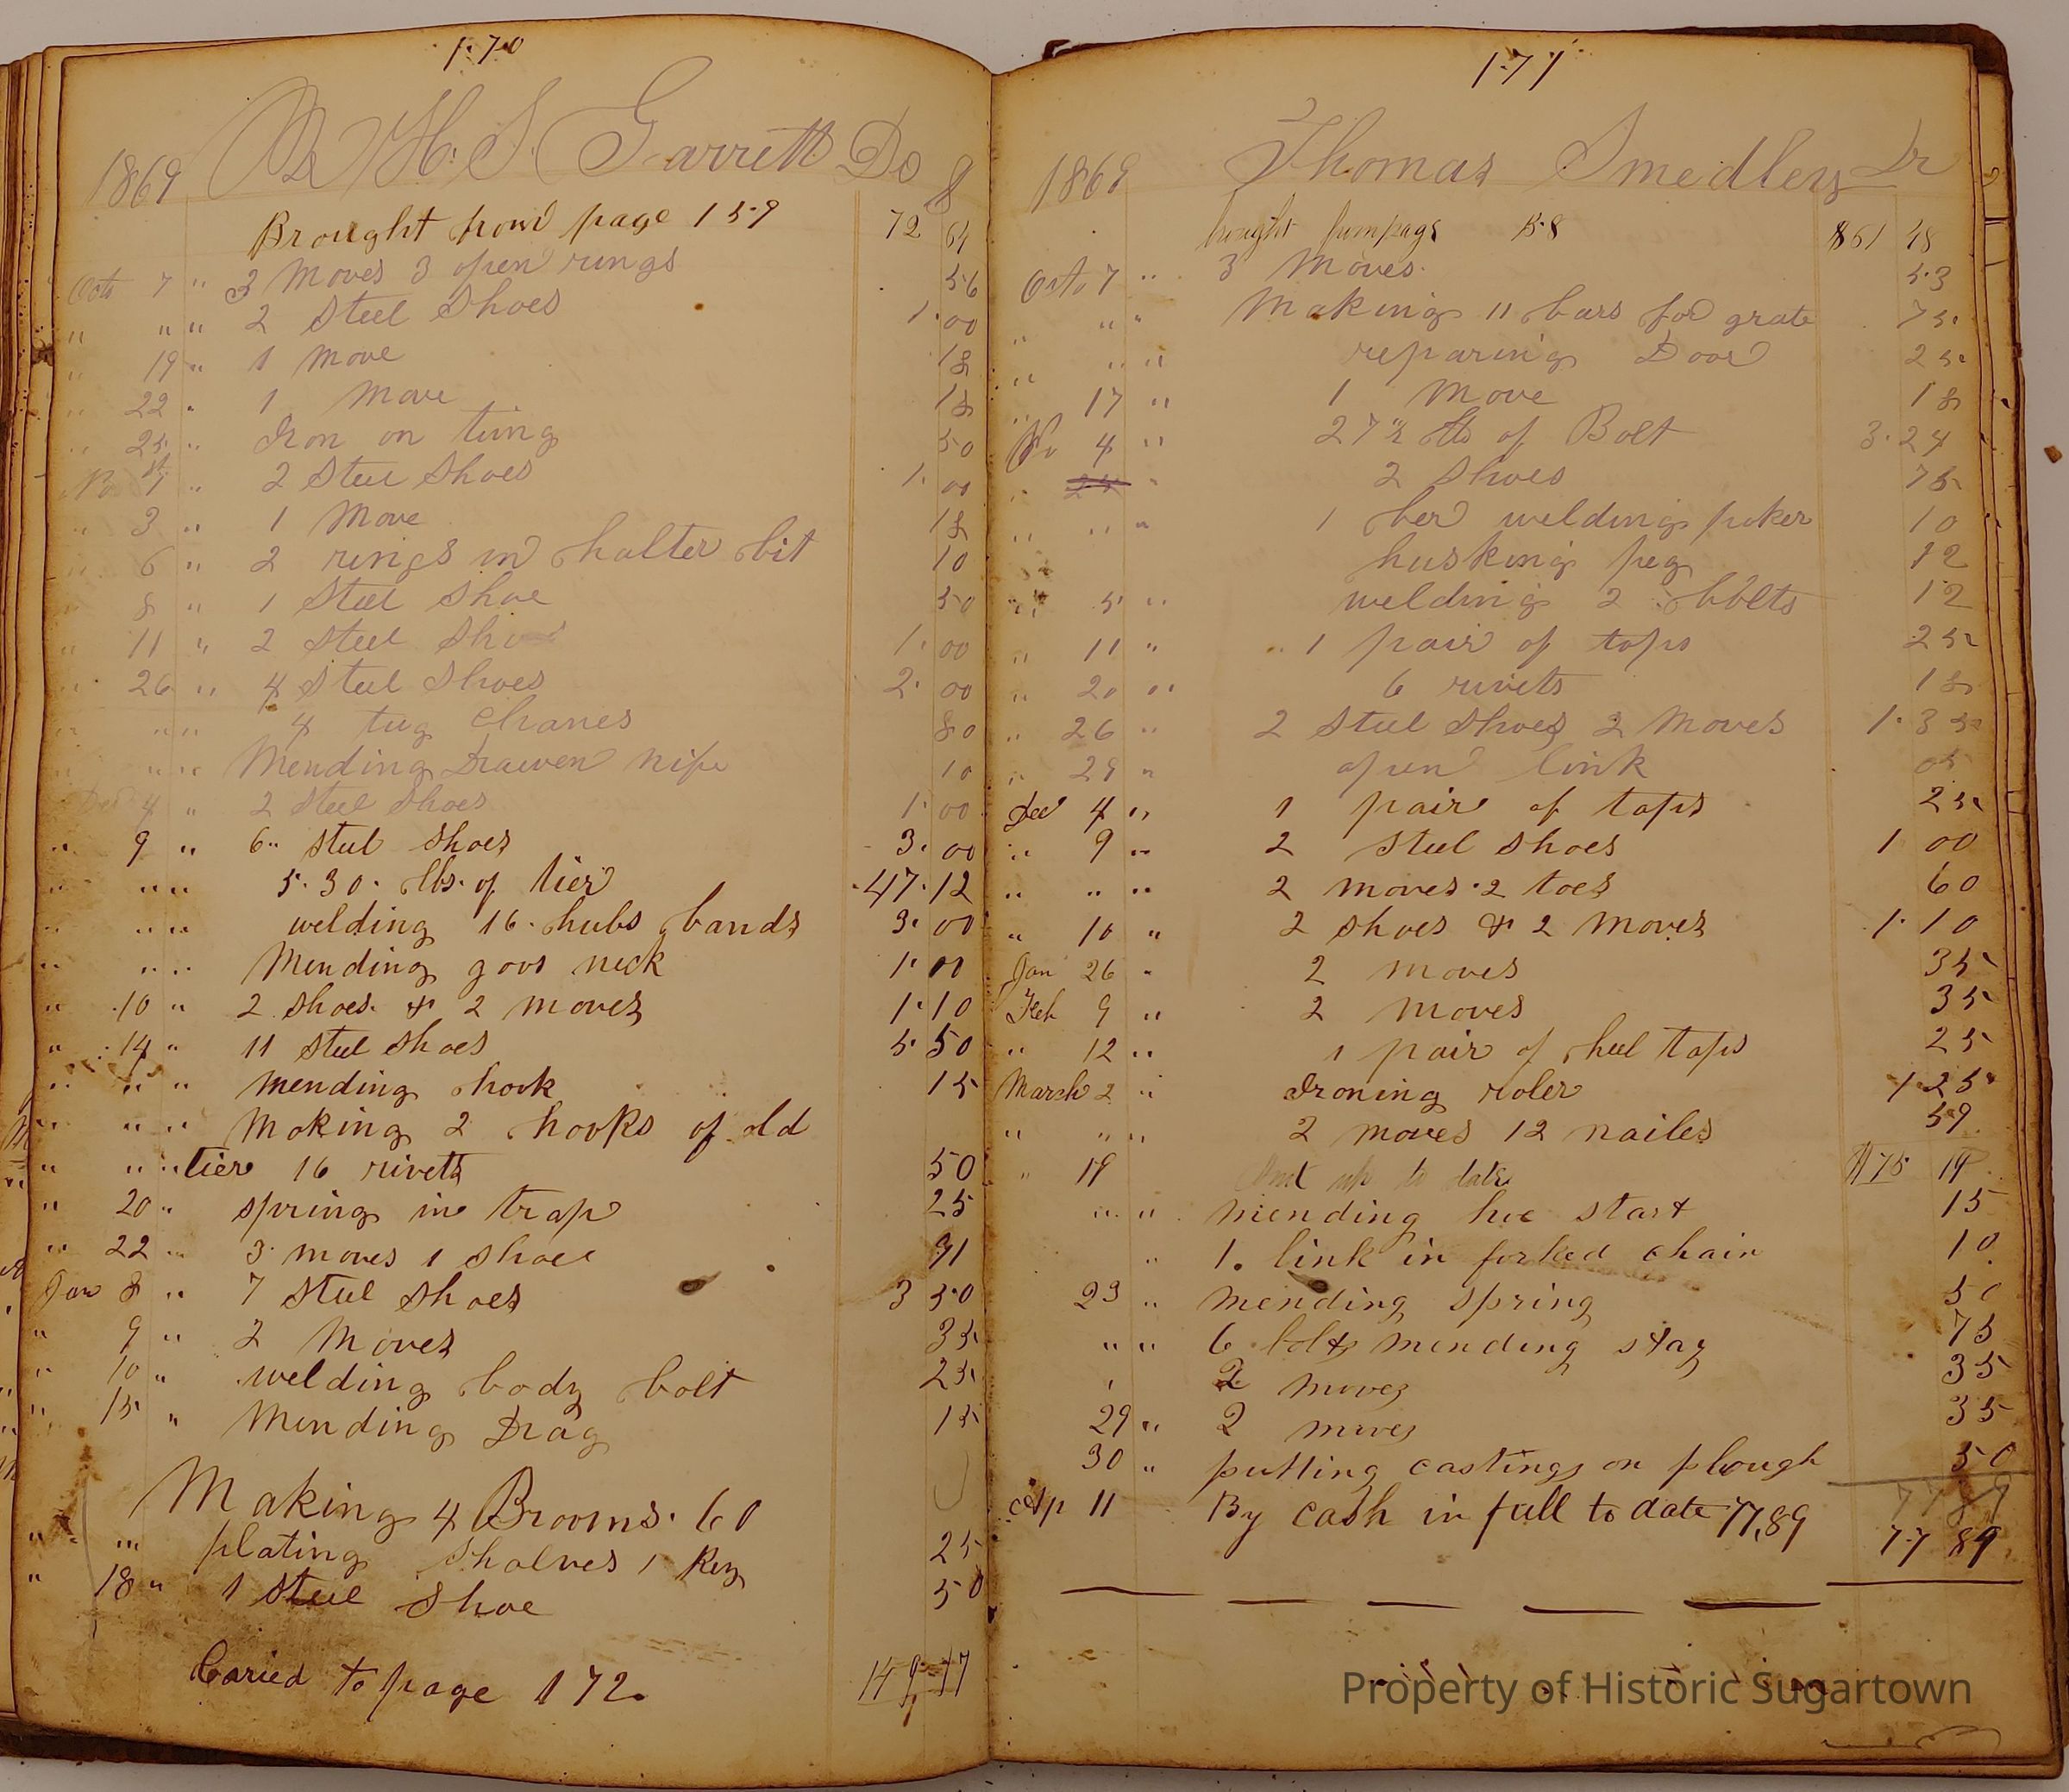 170
1869 H. S. Garrett Do $
Brought from page 159 72 64
Octo 7 " 3 Moves 3 open rings 56
" " " 2 Steel Shoes 1.00
" 19 " 1 Move 18
" 22 " 1 Move 18
" 25 " Iron on tung 50
No 1st " 2 Steel Shoes 1.00
" 3 " 1 Move 18
" 6 " 2 rings in halter bit 10
" 8 " 1 Steel Shoe 50
" 11 " 2 Steel Shoes 1.00
" 26 " 4 Steel Shoes 2.00
" " " 4 tug Chanes 80
" " " Mending Drawen nife 10
Dec 4 " 2 Steel Shoes 1.00
" 9 " 6 " Steel Shoes 3.00
" " " 530 lbs of tier 47.12
" " " welding 16 hubs bands 3.00
" " " Mending goos neck 1.00
" 10 " 2 Shoes & 2 moves 1.10
" 14 " 11 Steel Shoes 5.50
" " " Mending hook 15
" " " Making 2 hooks of old
" " " tier 16 rivets 50
" 20 " spring in trap 25
" 22 " 3 moves 1 shoe 91
Jan 8 " 7 Steel Shoes 3 50
" 9 " 2 Moves 35
" 10 " welding body bolt 25
" 15 " Mending Drag 15
Making 4 Brooms. 60
" " plating Shalves 1 Key 25
" 18 " 1 Steel Shoe 50
Caried to page 172. 149.77
171
1869 Thomas Smedley Dr
brought from page 158 $61 48
Octo 7 " 3 Moves 53
" " " Making 11 bars for grate 75
" " " reparing Door 25
" 17 " 1 Move 18
No 4 " 27 lbs of Bolt 3.24
" " 2 Shoes 75
" " " 1 ber welding poker 10
husking peg 12
" 5 " welding 2 bolts 12
" 11 " 1 pair of taps 25
" 20 " 6 rivets 18
" 26 " 2 Steel Shoes 2 Moves 1.35
" 29 " open link 05
Dec 4 " 1 pair of taps 25
" 9 " 2 Steel Shoes 1 00
" " " 2 moves 2 toes 60
" 10 " 2 shoes & 2 moves 1.10
Jan 26 " 2 moves 35
Feb 9 " 2 moves 35
" 12 " 1 pair of heel taps 25
March 2 " Ironing roler 1.25
" " " 2 moves 12 nailes 59
" 19 Amt up to date $75 19
" " mending hoe start 15
" 1. link in forked chain 10
23 " mending spring 50
" " 6 bolts mending stay 75
2 moves 35
29 " 2 moves 35
30 " putting castings on plough 50
77 89
Ap 11 By cash in full to date 77,89 77 89
Property of Historic Sugartown